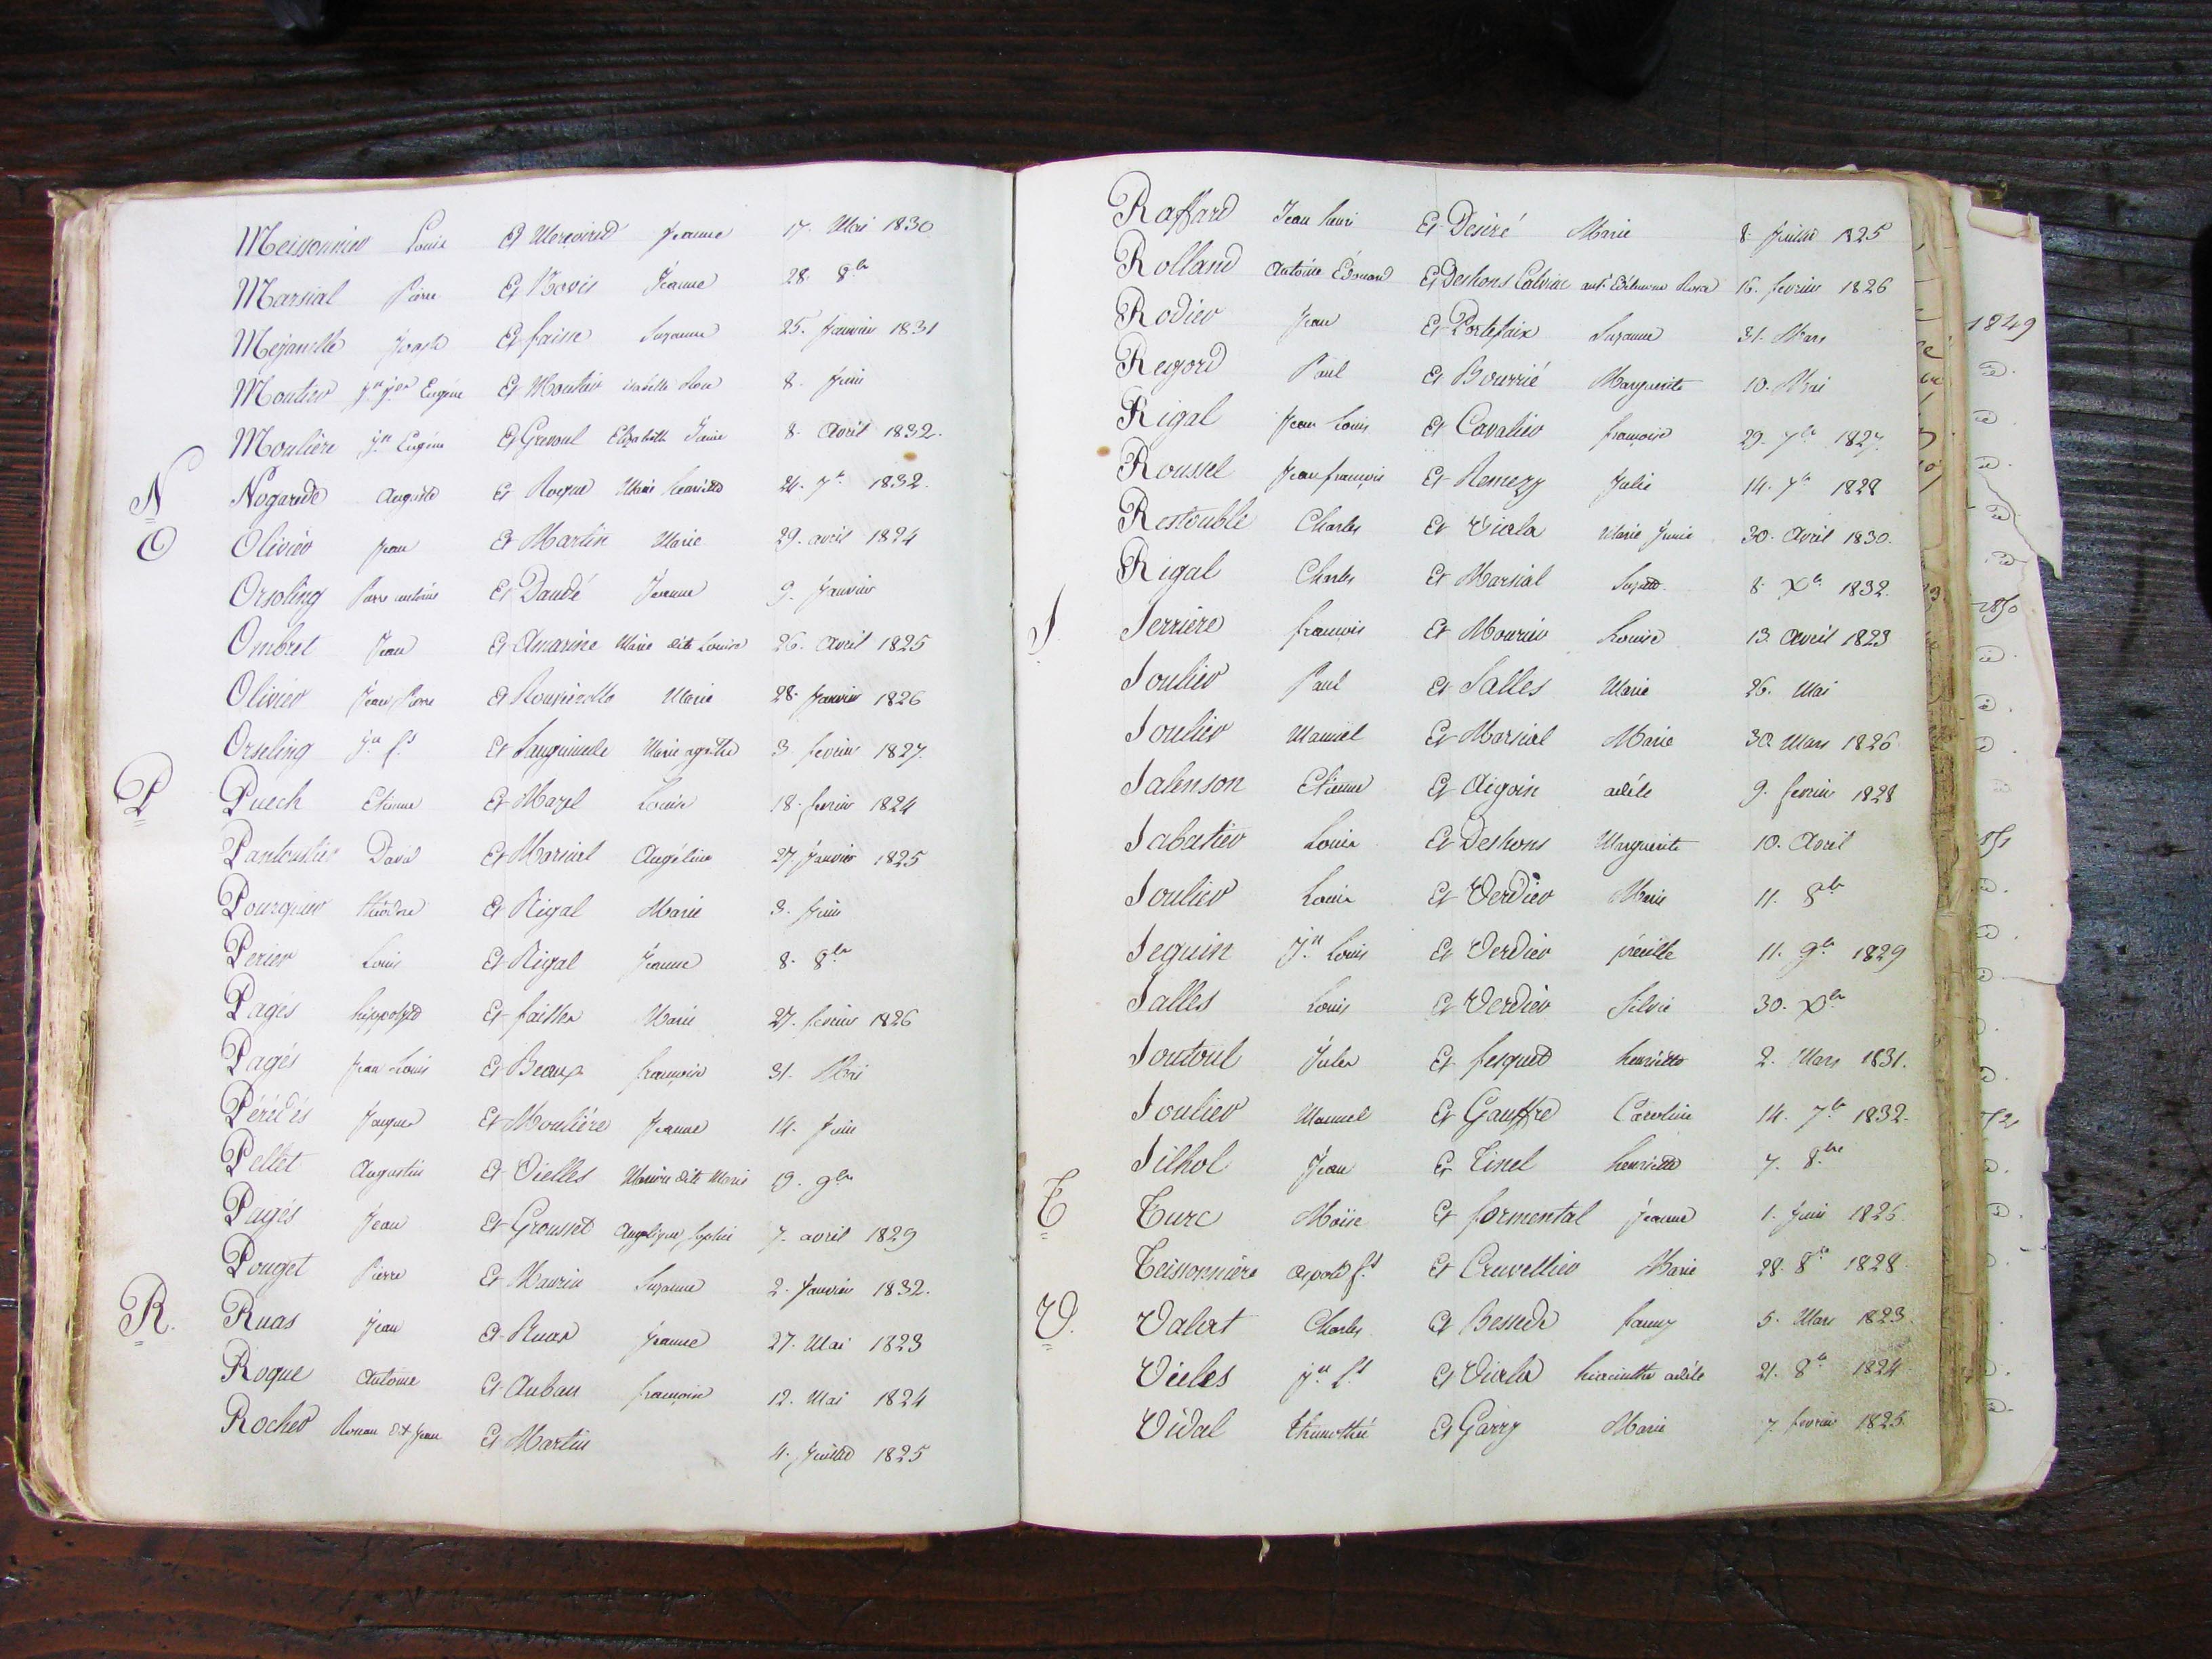 Meissonnier Louis Et Jeanne 17. Mai 1830
Marsial Pierre Et Bovis Jeanne 28. 8bre
Mejanelle Joseph Et faisse Suzanne 25. Janvier 1831
Moutier Jn Jes Eugène Et Moutier isabelle Rose 8. Juin
Moulière Jn Eugène Et Grenoul Elizabeth Jenni 8. Avril 1832.
N Nogarede Auguste Et Roque Marie henriette 24. 7bre 1832.
O Olivier Jean Et Martin Marie 29. avril 1824
Orsoling Pierre antoine Et Daudé Jeanne 9. Janvier
Ombret Jean Et Amarine Marie dite Louise 26. Avril 1825
Olivier Jean Pierre Et Marie 28. Janvier 1826
Orseling Jn fs Et Marie agathe 3 fevrier 1827.
P Puech Etienne Et Mazel Louise 18. fevrier 1824
Pantoustier David Et Marsial Angéline 27. Janvier 1825
Pourquier théodore Et Rigal Marie 3. Juin
Perier Louis Et Rigal Jeanne 8. 8bre
Pagés hippolyte Et Marie 27. fevrier 1826
Pagés Jean Louis Et Beaux françoise 31. Mai
Pérédés Jacques Et Moulière Jeanne 14. Juin
Pellet Augustin Et Vielles dite Marie 19. 9bre
Pagés Jean Et Grousset Angelique Sophie 7. avril 1829
Pouget Pierre Et Maurin Suzanne 2. Janvier 1832.
R. Ruas Jean Et Ruas Jeanne 27. Mai 1823
Roque Antoine Et Auban françoise 12. Mai 1824
Rocher dt Jean Et Martin 4. Juillet 1825
Raffard Jean Louis Et Desiré Marie 8. Juillet 1825
Rolland Antoine Édouard Et Deshons Calviac Rose 16. fevrier 1826
Rodier Jean Et Portefaix Suzanne 31. Mars
Regord Paul Et Bourrié Marguerite 10. Mai
Rigal Jean Louis Et Cavalier françoise 29. 7bre 1827.
Roussel Jean françois Et Remezy Julie 14. 7bre 1828
Restouble Charles Et Viala Marie Junie 30. Avril 1830.
Rigal Charles Et Marsial Suzette 8. Xbre 1832.
S Serriere françois Et Mourier Louise 13 Avril 1823
Soulier Paul Et Salles Marie 26. Mai
Soulier Manuel Et Marsial Marie 30 Mars 1826
Salenson Etienne Et Aigoin adèle 9. fevrier 1828
Sabatier Louis Et Deshons Marguerite 10. Avril
Soulier Louis Et Verdier Marie 11. 8bre
Seguin Jn Louis Et Verdier 11. 9bre 1829
Salles Louis Et Verdier Silvie 30. Xbre
Soutoul Jules Et fesquet henriette 2. Mars 1831.
Soulier Manuel Et Gauffre Caroline 14. 7bre 1832.
Silhol Jean Et Tinel henriette 7. 8bre
T Turc Moïse Et formental Jeanne 1. Juin 1826
Teissonniere fs Et Cruvellier Marie 28. 8bre 1828.
V. Valat Charles Et Bessede fanny 5. Mars 1823.
Vieles Jn fs Et Viala hiacinthe adèle 21. 8bre 1824
Vidal thimothé Et Garry Marie 7. fevrier 1825
1849